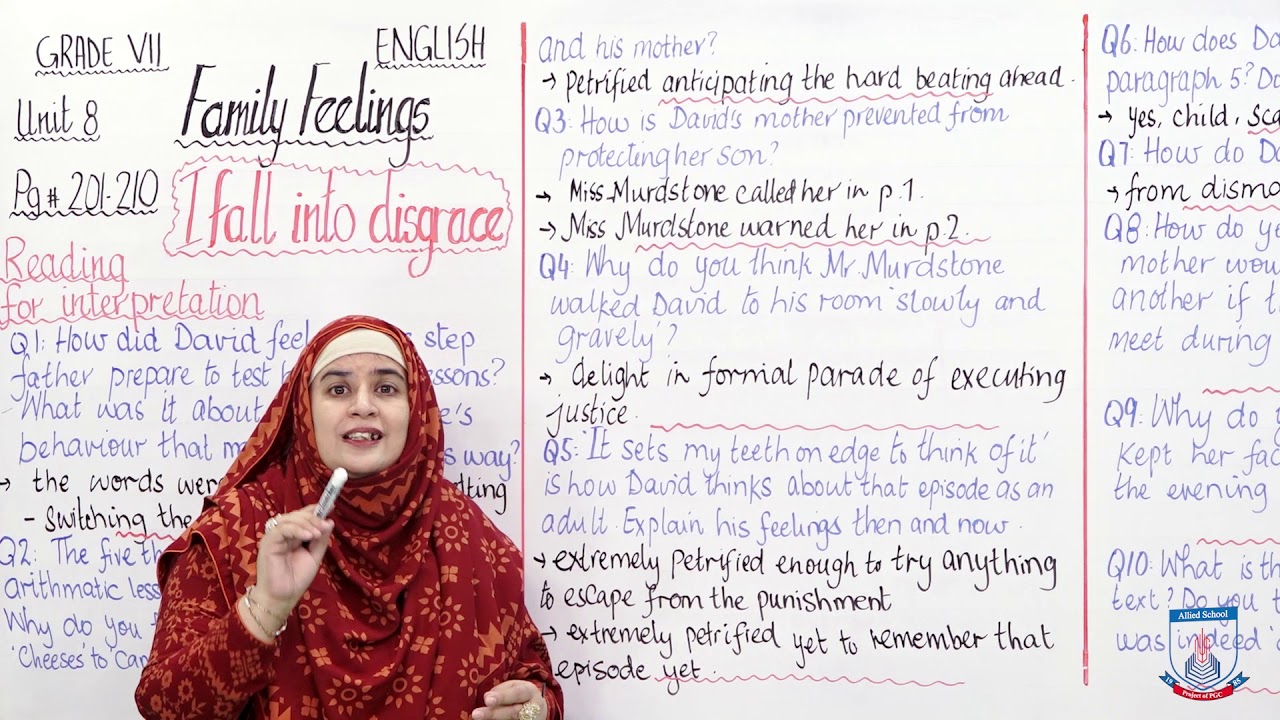 GRADE VII
ENGLISH
Unit 8
Family Feelings
Pg # 201-210
I fall into disgrace
Reading
for interpretation
Q1: How did David feel step
father prepare to test lessons?
What was it about
behaviour that way?
the words were
- switching the
Q2: The five
arithmatic
Why do you
'Cheeses' to
and his mother?
→ petrified anticipating the hard beating ahead.
Q3: How is David's mother prevented from
protecting her son?
→ Miss Murdstone called her in p.1.
→ Miss Murdstone warned her in p.2.
Q4: Why do you think Mr. Murdstone
walked David to his room 'slowly and
gravely'?
→ delight in formal parade of executing
justice.
Q5: 'It sets my teeth on edge to think of it'
is how David thinks about that episode as an
adult. Explain his feelings then and now.
→ extremely petrified enough to try anything
to escape from the punishment
→ extremely petrified yet to remember that
episode yet.
Q6: How does
paragraph 5?
→ yes, child,
Q7: How do
→ from
Q8: How do
mother
another if
meet during
Q9: Why do
kept her
the evening
Q10: What is
text? Do you
was indeed
Allied School
19 85
Project of PGC